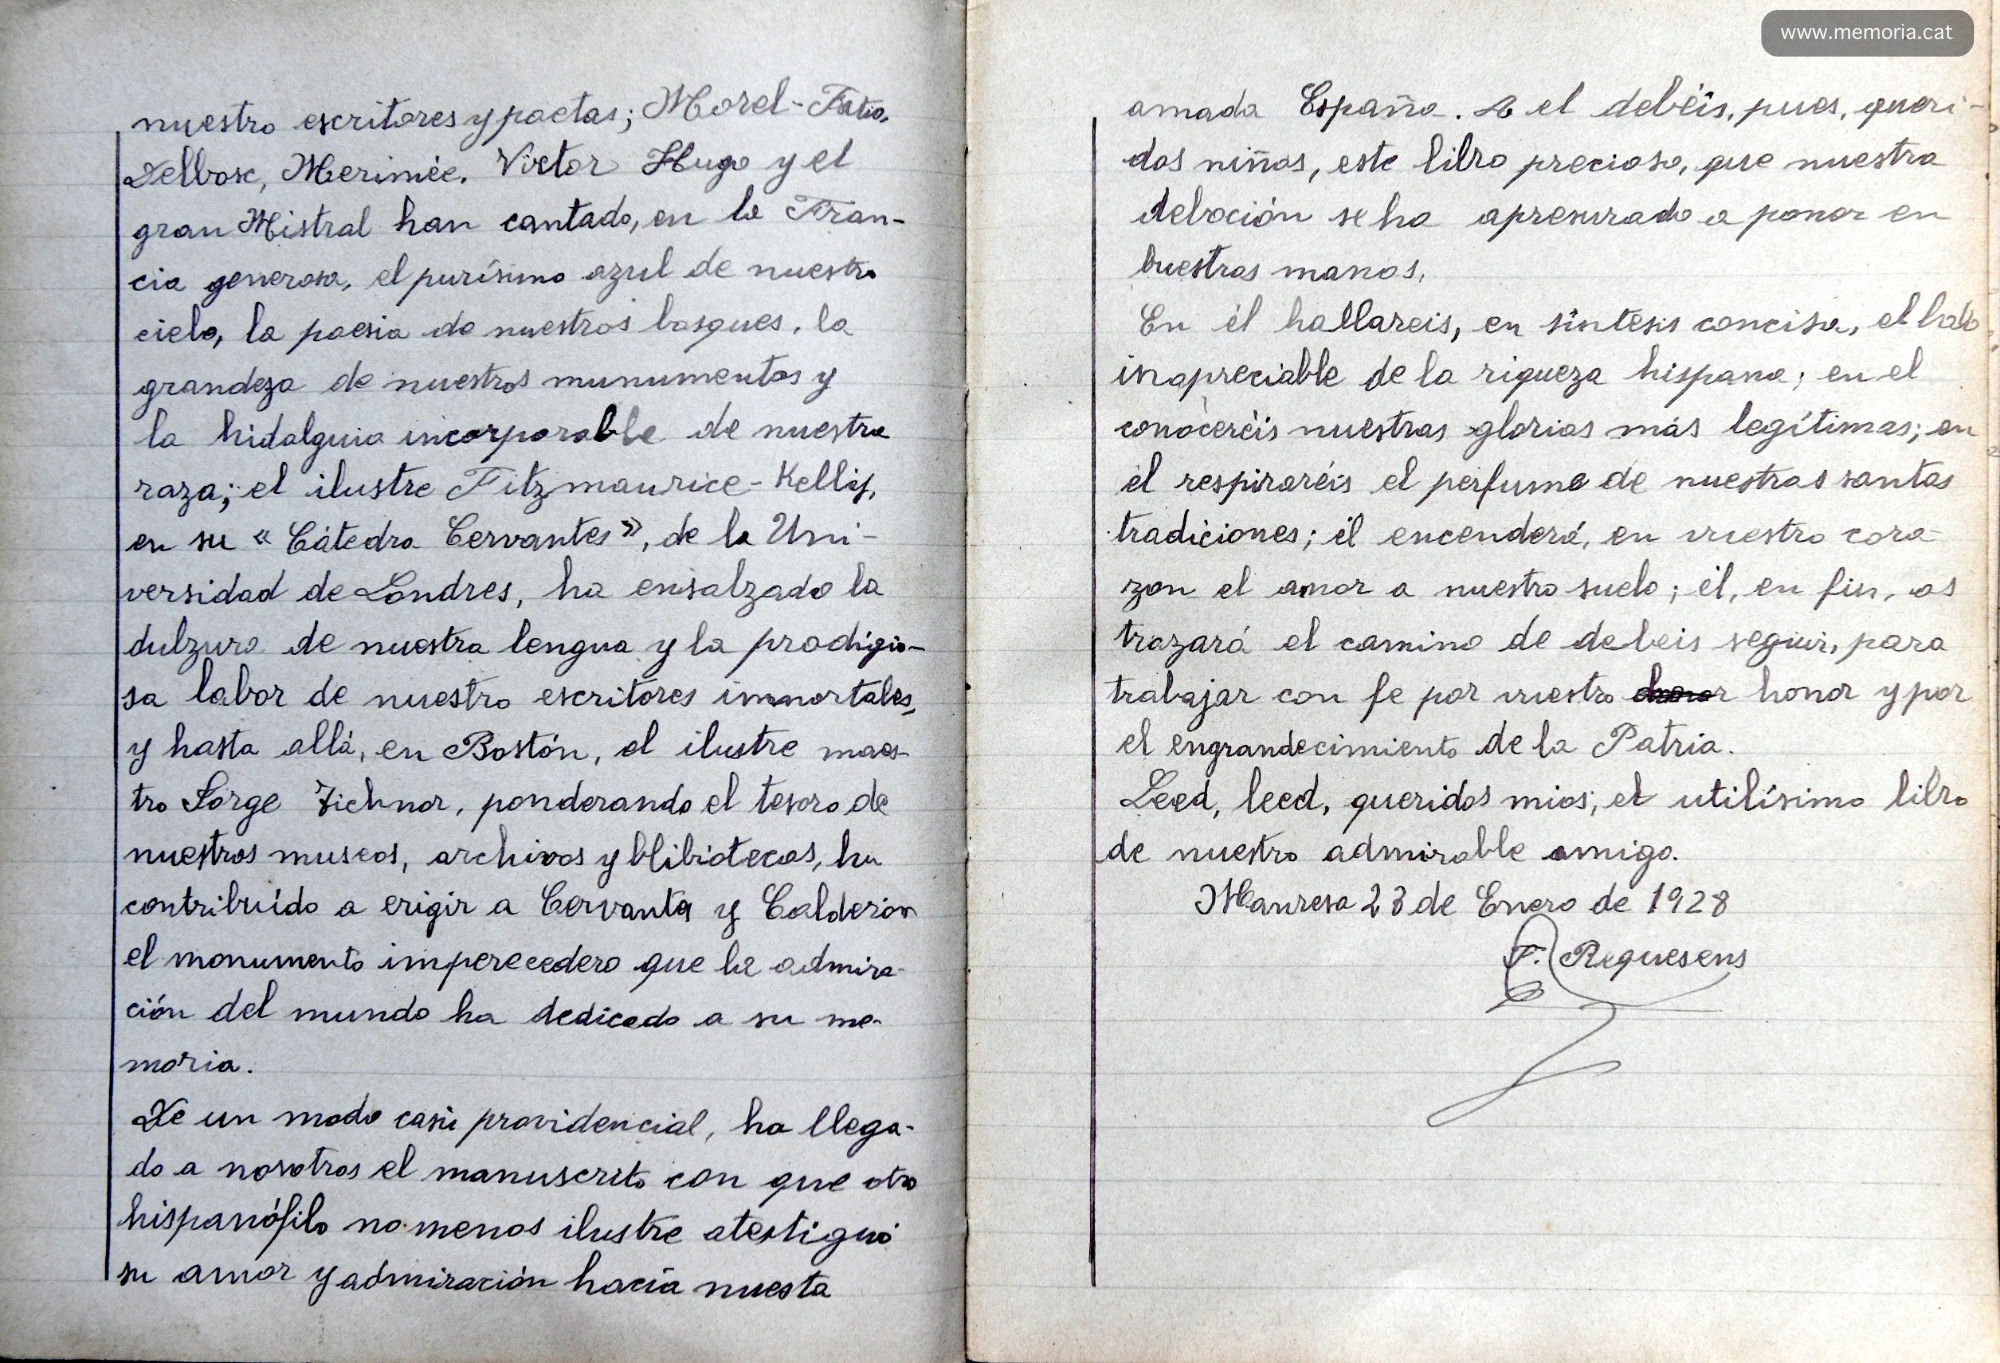 www.memoria.cat
nuestro escritores y poetas; Morel-Fatio,
Delbosc, Merimée, Victor Hugo y el
gran Mistral han cantado, en la Fran-
cia generosa, el purísimo azul de nuestro
cielo, la poesia de nuestros bosques, la
grandeza de nuestros munumentos y
la hidalguia incorporable de nuestra
raza; el ilustre Fitzmaurice-Kelly,
en su « Cátedra Cervantes », de la Uni-
versidad de Londres, ha ensalzado la
dulzura de nuestra lengua y la prodigio-
sa labor de nuestro escritores inmortales,
y hasta allá, en Bostón, el ilustre maes-
tro Jorge Tichnor, ponderando el tesoro de
nuestros museos, archivos y blibiotecas, ha
contribuído a erigir a Cervantes y Calderón
el monumento imperecedero que la admira-
ción del mundo ha dedicado a su me-
moria.
De un modo casi providencial, ha llega-
do a nosotros el manuscrito con que otro
hispanófilo no menos ilustre atestiguó
su amor y admiración hacía nuesta
amada España. A el debéis, pues, queri-
dos niños, este libro precioso, que nuestra
deboción se ha apresurado a poner en
buestras manos.
En él hallareis, en síntesis concisa, el
inapreciable de la riqueza hispana; en el
conoceréis nuestras glorias más legítimas; en
él respiraréis el perfume de nuestras santas
tradiciones; él encenderá, en vuestro cora-
zon el amor a nuestro suelo; él, en fin, os
trazará el camino de debeis seguir, para
trabajar con fe por vuestro honor y por
el engrandecimiento de la Patria.
Leed, leed, queridos mios; el utilísimo libro
de nuestro admirable amigo.
Manresa 23 de Enero de 1928
F. Requesens